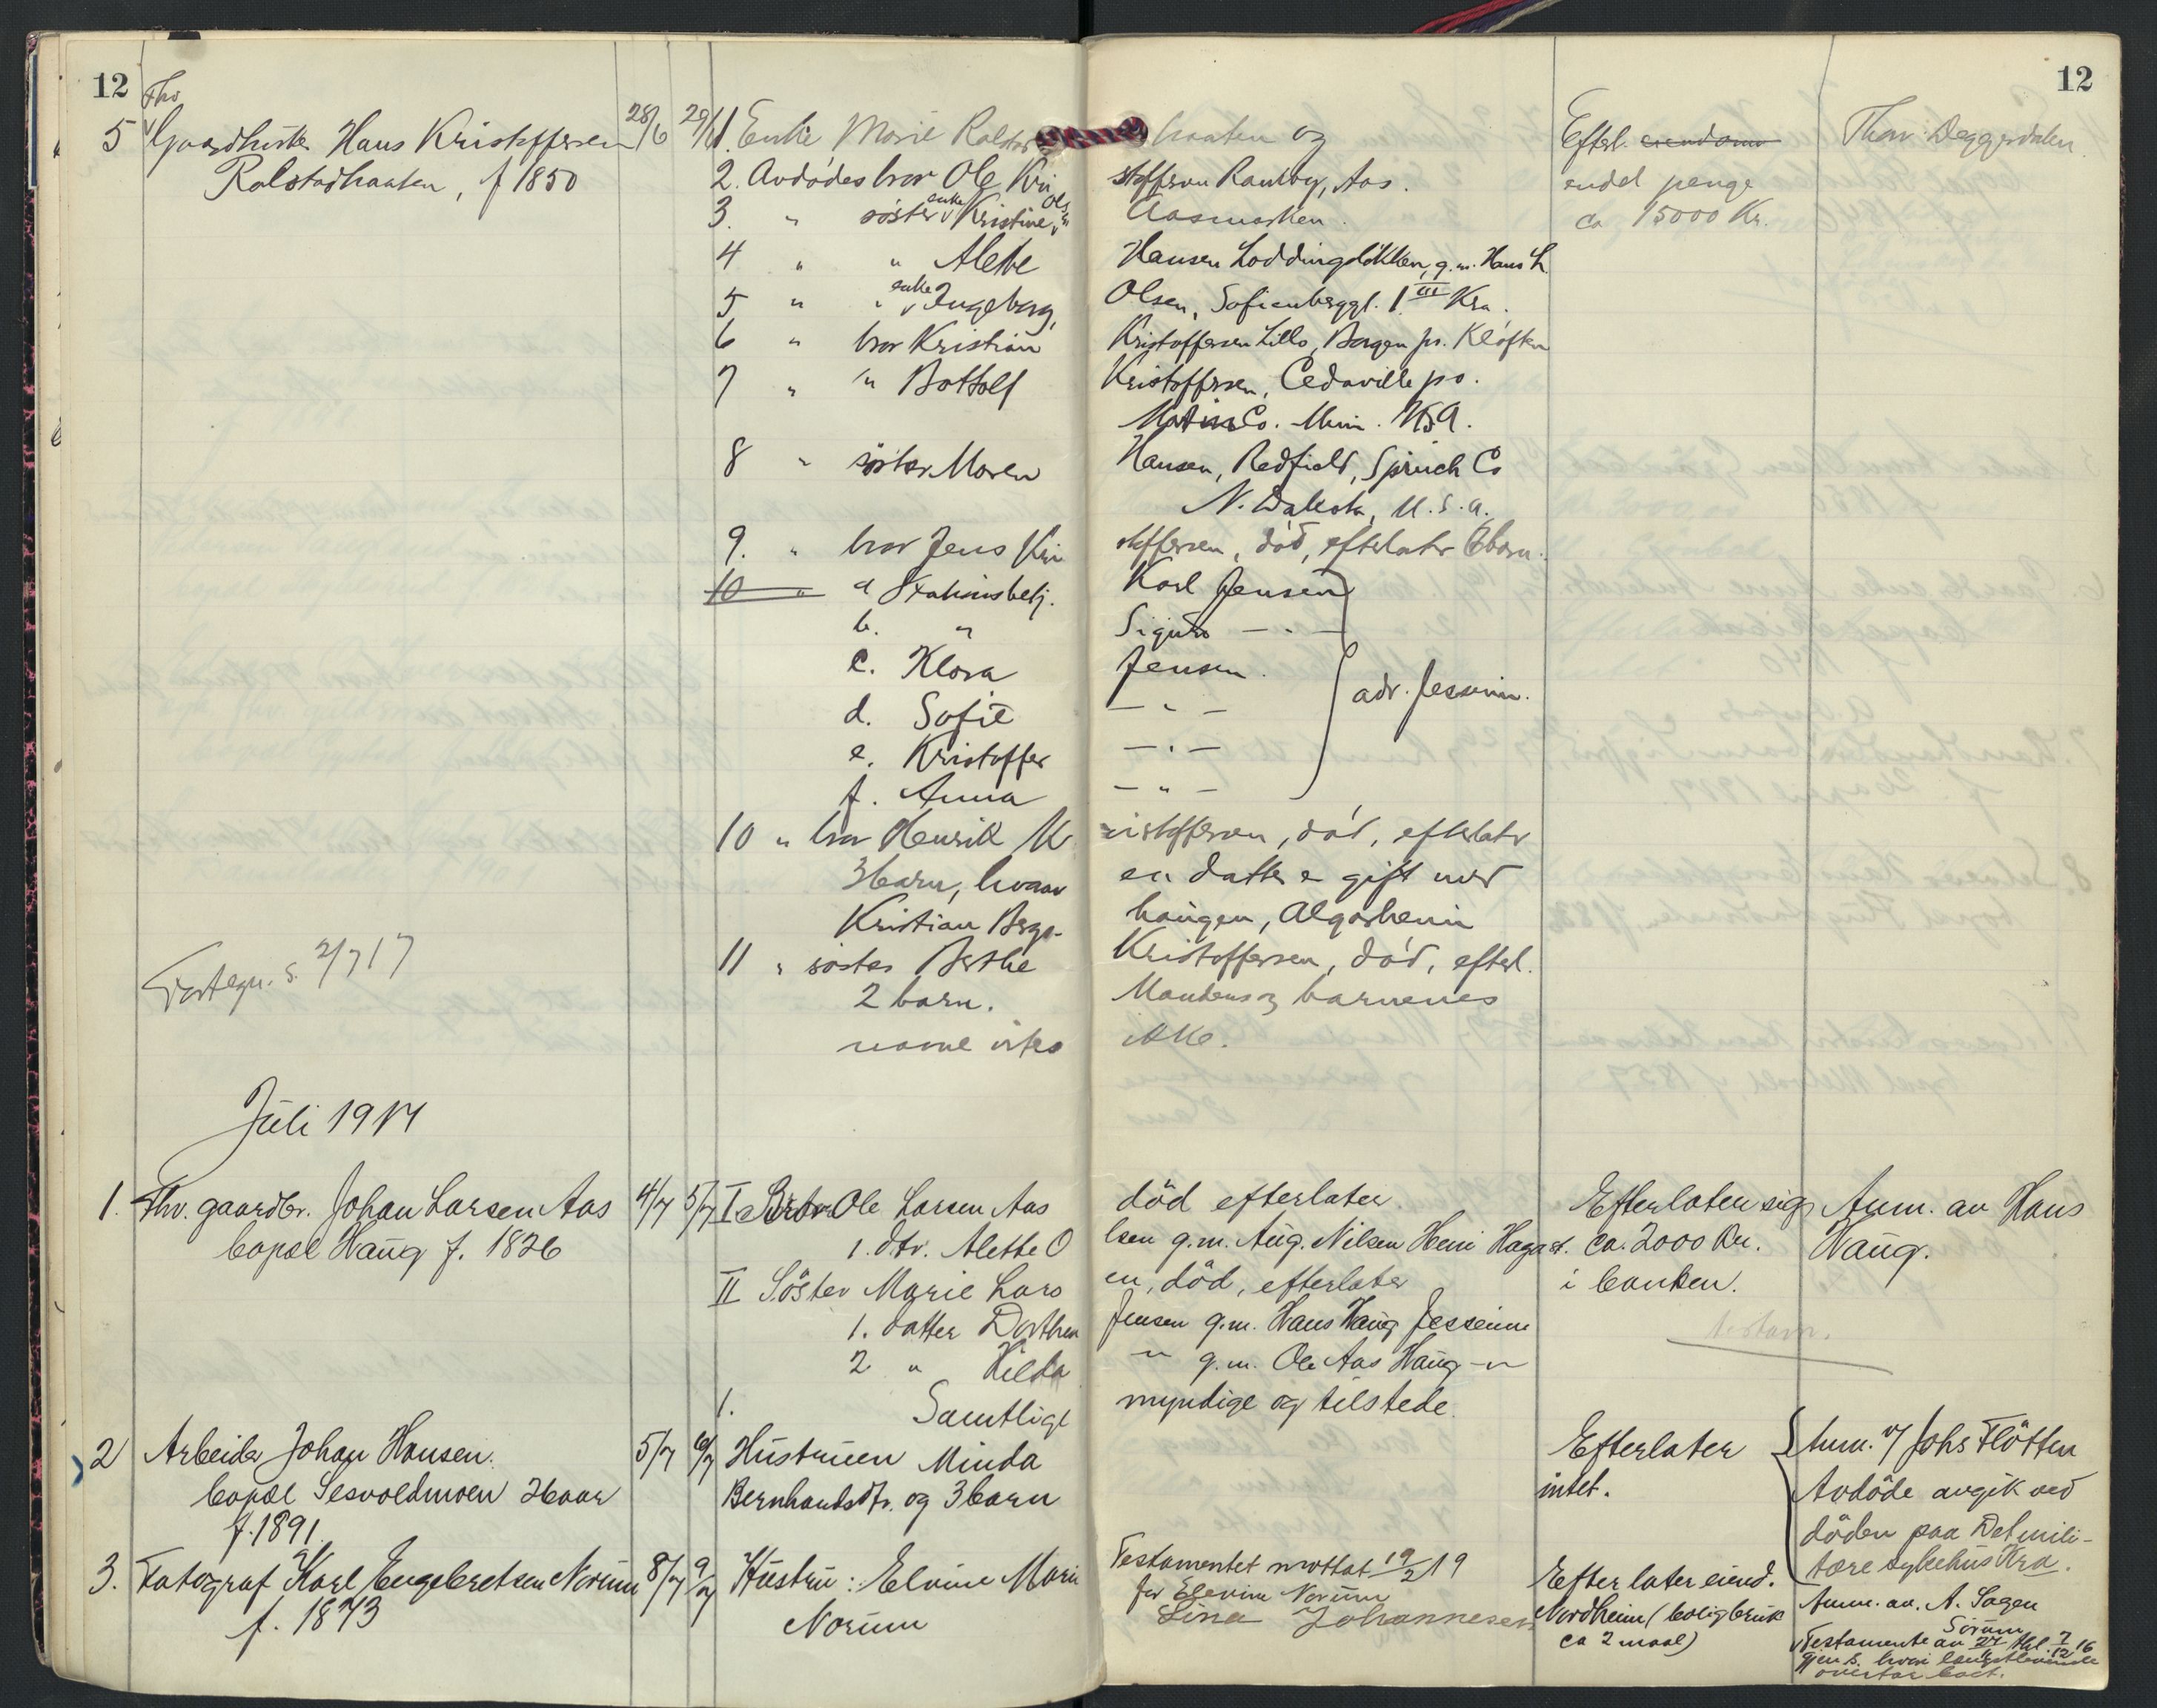 12
12
Fhv
5 Gaardbruker Hans Kristoffersen 28/6 29/6 1. Enke Marie Ralstad braaten og Efterl. eiendom Thorv. Deggerdalen
Ralstadbraaten, f 1850 2. Avdødes bror Ole Kri stoffersen Ramby, Aas. endel penge
3. " søster enke Kristine Ols Aasmarken. ca 15000 Kr.
4 " " Alette Hansen Loddingløkken, g.m. Hans H.
5 " " enke Ingeborg, Olsen, Sofienberggt. 1 III Kra.
6 " bror Kristian Kristoffersen Lillo, Borgen pr. Kløften
7 " " Bottolf Kristoffersen, Cedaville po.
Martin Co. Minn. USA.
8 " søster Maren Hansen, Redfield, Spinch Co
N. Dakota, U.S.A.
9. " bror Jens Kri stoffersen, død, efterlater 6 barn.
10 " a Stationsbetj. Karl Jensen
b. " Sigurd - " -
c. Klara Jensen.
d. Sofie - " - adr. Jessheim.
e. Kristoffer - " -
f. Anna - " -
10 " bror Henrik K ristoffersen, død, efterlater
3 barn, hvorav en datter er gift med
Kristian Berge- haugen, Algarheim
11 " søster Berthe Kristoffersen, død, efterl.
2 barn. Mandens og barnenes
navne vites ikke.
Fortegn. s. 2/7 17
Juli 1917
1. Fhv. gaardbr. Johan Larsen Aas 4/7 5/7 I Bror Ole Larsen Aas død efterlater Efterlater sig Anm. av Hans
bopæl Haug f. 1826 1. dtr. Alette O lsen g.m. Aug. Nilsen Hem Hagast. ca. 2000 Kr. Haug.
II Søster Marie Lars en, død, efterlater i banken.
1. datter Dorthea Jensen g.m. Hans Haug Jessheim
2 " Hilda -"- g.m. Ole Aas Haug -"-
1. Samtlige myndige og tilstede.
2 Arbeider Johan Hansen. 5/7 6/7 Hustruen Minda Efterlater Anm. v/ Johs Fløtten
bopæl Sesvoldmoen 26 aar Bernhardsdtr. og 3 barn intet. Avdøde avgik ved
f. 1891. døden paa Det mili-
tære sykehus Kra.
3. Fotograf Karl Engebretsen Norum 8/7 9/7 Hustru: Elvine Marie Testamentet mottat 19/2 19 Efterlater eiend. Anm. av. A. Sagen
f. 1873 Norum for Elevine Norum Nordheim (boligbruk Sørum
Lina Johannesen ca 2 maal) Testamente av 27/4 tgl. 7/12 16
gjens. hvori længstlevende
overtar boet.